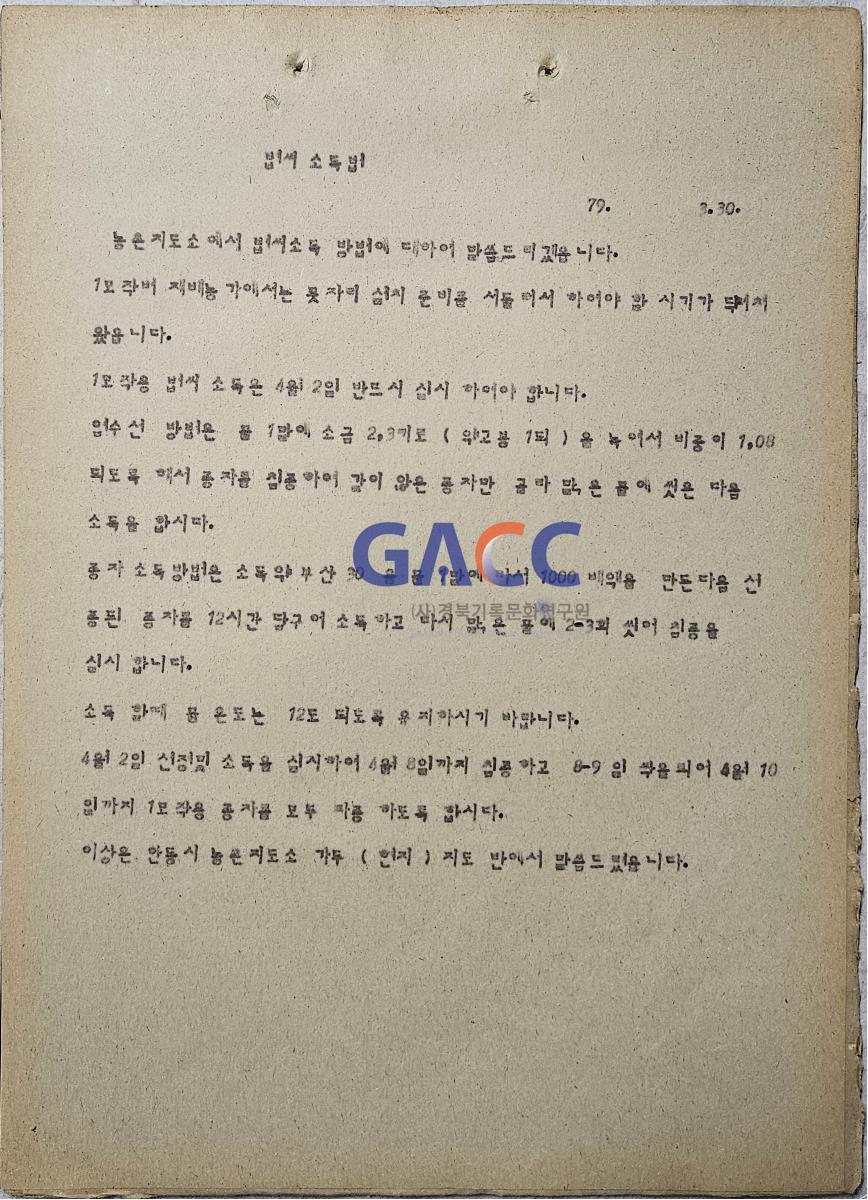 볍씨 소독법
79. 3.30.
농촌지도소에서 볍씨소독 방법에 대하여 말씀드리겠읍니다.
1모작벼 재배농가에서는 못자리 설치 준비를 서둘러서 하여야 할 시기가 닥쳐
왔읍니다.
1모작용 볍씨 소독은 4월 2일 반드시 실시 하여야 합니다.
염수선 방법은 물 1말에 소금 2,3키로 ( 약고봉 1되 ) 을 녹여서 비중이 1,08
되도록 해서 종자를 침종하여 같이 않은 종자만 골라 맑은 물에 씻은 다음
소독을 합시다.
종자 소독방법은 소독약 부산 30 을 물 1말에 타서 1000 배액을 만든다음 선
종된 종자를 12시간 담구어 소독하고 다시 맑은 물에 2-3회 씻어 침종을
실시 합니다.
소독 할때 물 온도는 12도 되도록 유지하시기 바랍니다.
4월 2일 선정및 소독을 실시하여 4월 8일까지 침종하고 8-9 일 싹을틔어 4월 10
일까지 1모작용 종자를 모두 파종 하도록 합시다.
이상은 안동시 농촌지도소 가두 ( 현지 ) 지도 반에서 말씀드렸읍니다.
GACC
(사)경북기록문화연구원